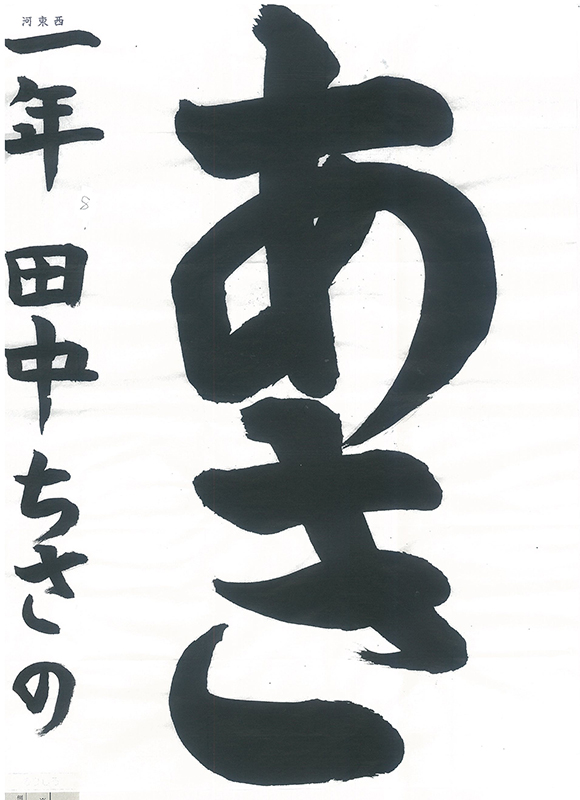 あき
河東西
一年 田中ちさの